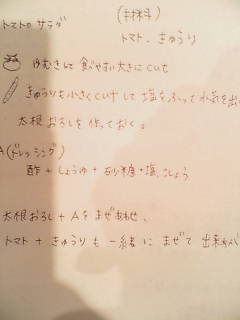 トマトのサラダ
(材料)
トマト、きゅうり
ゆむきして食べやすい大きさにくいむ
きゅうりも小さくして塩をふって水気を出
大根おろしを作っておく。
A(ドレッシング)
酢+しょうゆ+砂糖+塩、こしょう
大根おろし+Aをまぜあわせ、
トマト+きゅうりも一緒にまぜて出来上